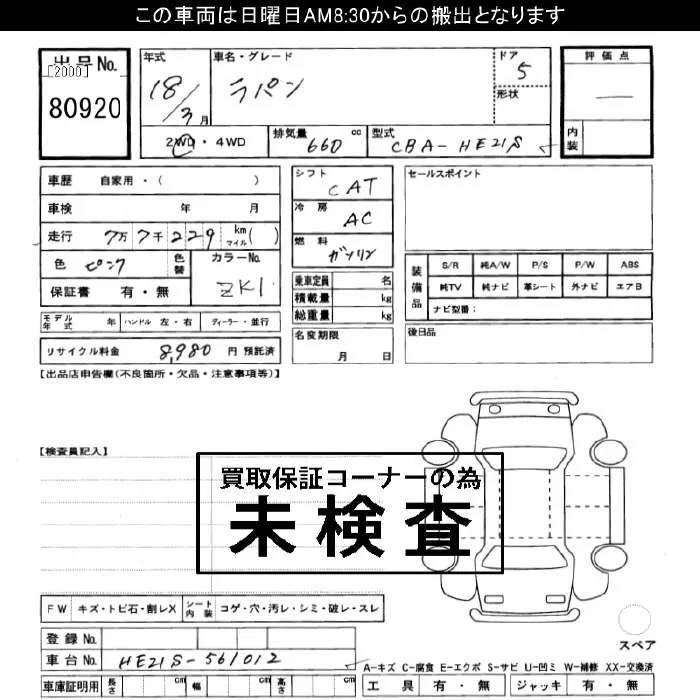 この車両は日曜日AM8:30からの搬出となります
出品No.
[2000]
80920
年式
18/3月
車名・グレード
ラパン
ドア
5
形状
2WD・4WD
排気量 660 cc
型式 CBA-HE21S
評価点
―
内装
車歴 自家用・( )
車検 年 月
走行 7万7千229 km マイル( )
色 ピンク 色替
カラーNo. ZK1
保証書 有・無
モデル年式 年 ハンドル 左・右 ディーラー・並行
リサイクル料金 8,980 円 預託済
シフト CAT
冷房 AC
燃料 ガソリン
乗車定員 名
積載量 kg
総重量 kg
名変期限
月 日
セールスポイント
装備品
S/R 純A/W P/S P/W ABS
純TV 純ナビ 革シート 外ナビ エアB
ナビ型番:
後日品
【出品店申告欄(不良箇所・欠品・注意事項等)】
【検査員記入】
買取保証コーナーの為
未検査
FW キズ・トビ石・割レX シート内装 コゲ・穴・汚レ・シミ・破レ・スレ
登録No.
車台No. HE21S-561012
車庫証明用 長さ cm 幅 cm 高さ cm
スペア
A-キズ C-腐食 E-エクボ S-サビ U-凹ミ W-補修 XX-交換済
工具 有・無 ジャッキ 有・無